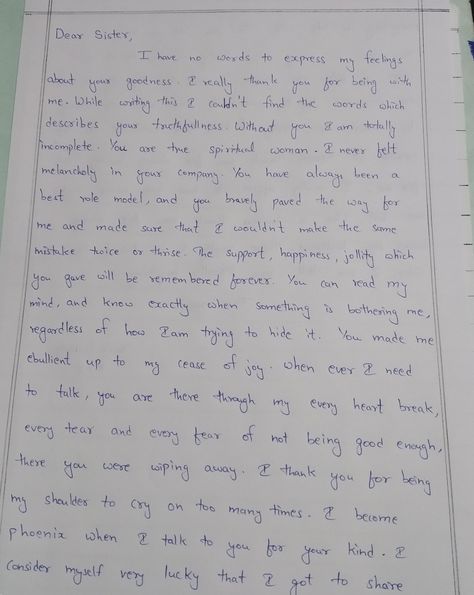 Dear Sister,
I have no words to express my feelings
about your goodness. I really thank you for being with
me. While writing this I couldn't find the words which
describes your truthfullness. Without you I am totally
incomplete. You are true spiritual woman. I never felt
melancholy in your company. You have always been a
best role model, and you bravely paved the way for
me and made sure that I wouldn't make the same
mistake twice or thrise. The support, happiness, jollity which
you gave will be remembered forever. You can read my
mind, and know exactly when something is bothering me,
regardless of how I am trying to hide it. You made me
ebullient up to my cease of joy. when ever I need
to talk, you are there through my every heart break,
every tear and every fear of not being good enough,
there you were wiping away. I thank you for being
my shoulder to cry on too many times. I become
phoenix when I talk to you for your kind. I
consider myself very lucky that I got to share